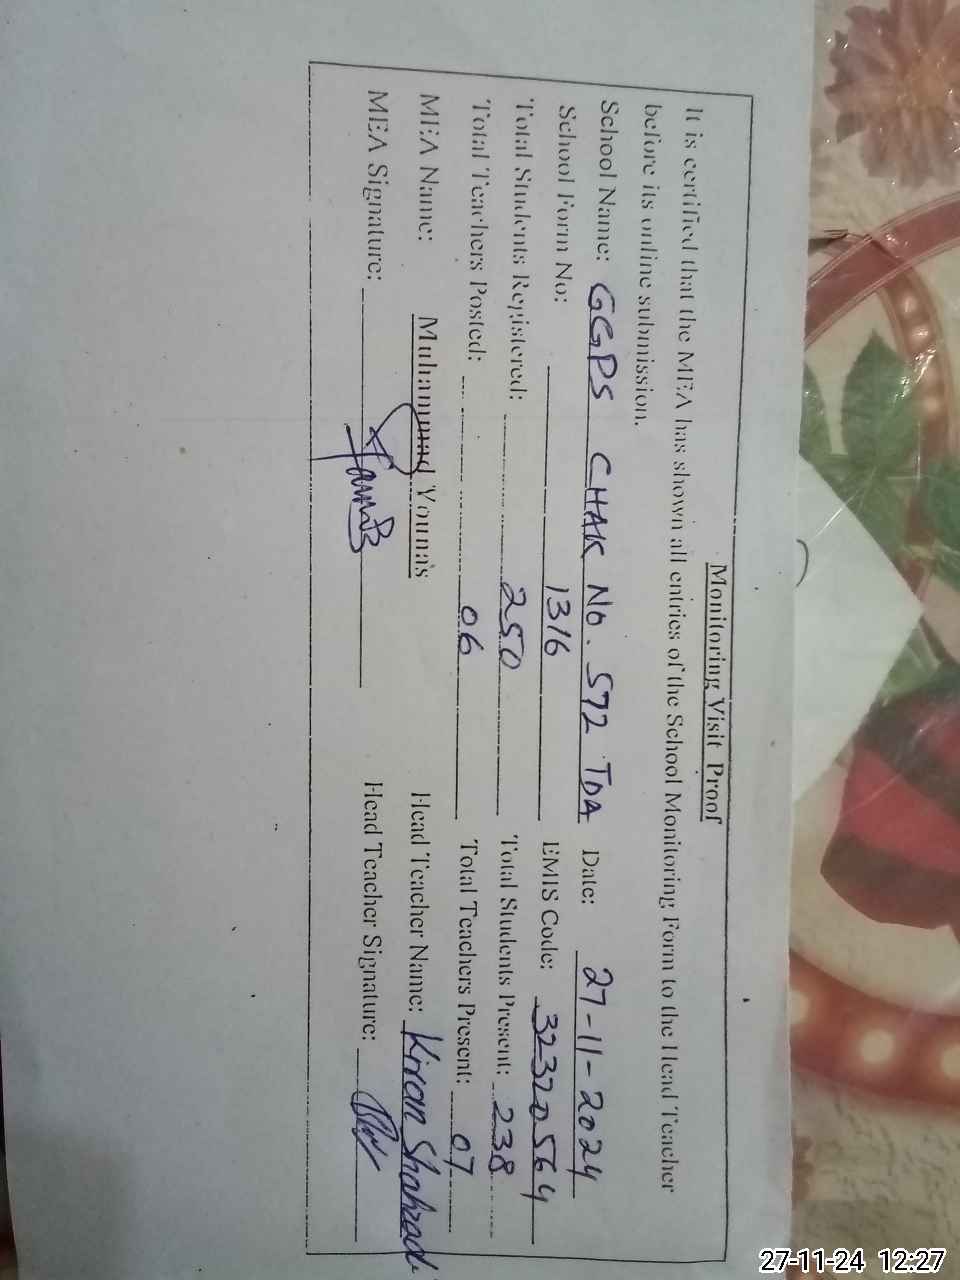 Monitoring Visit Proof
It is certified that the MEA has shown all entries of the School Monitoring Form to the Head Teacher
before its online submission.
School Name: GGPS CHAK No. 572 TDA Date: 27-11-2024
School Form No: 1316 EMIS Code: 32320564
Total Students Registered: 250 Total Students Present: 238
Total Teachers Posted: 06 Total Teachers Present: 07
MEA Name: Muhammad Younas Head Teacher Name: Kiran Shahzadi
MEA Signature: Head Teacher Signature:
27-11-24 12:27